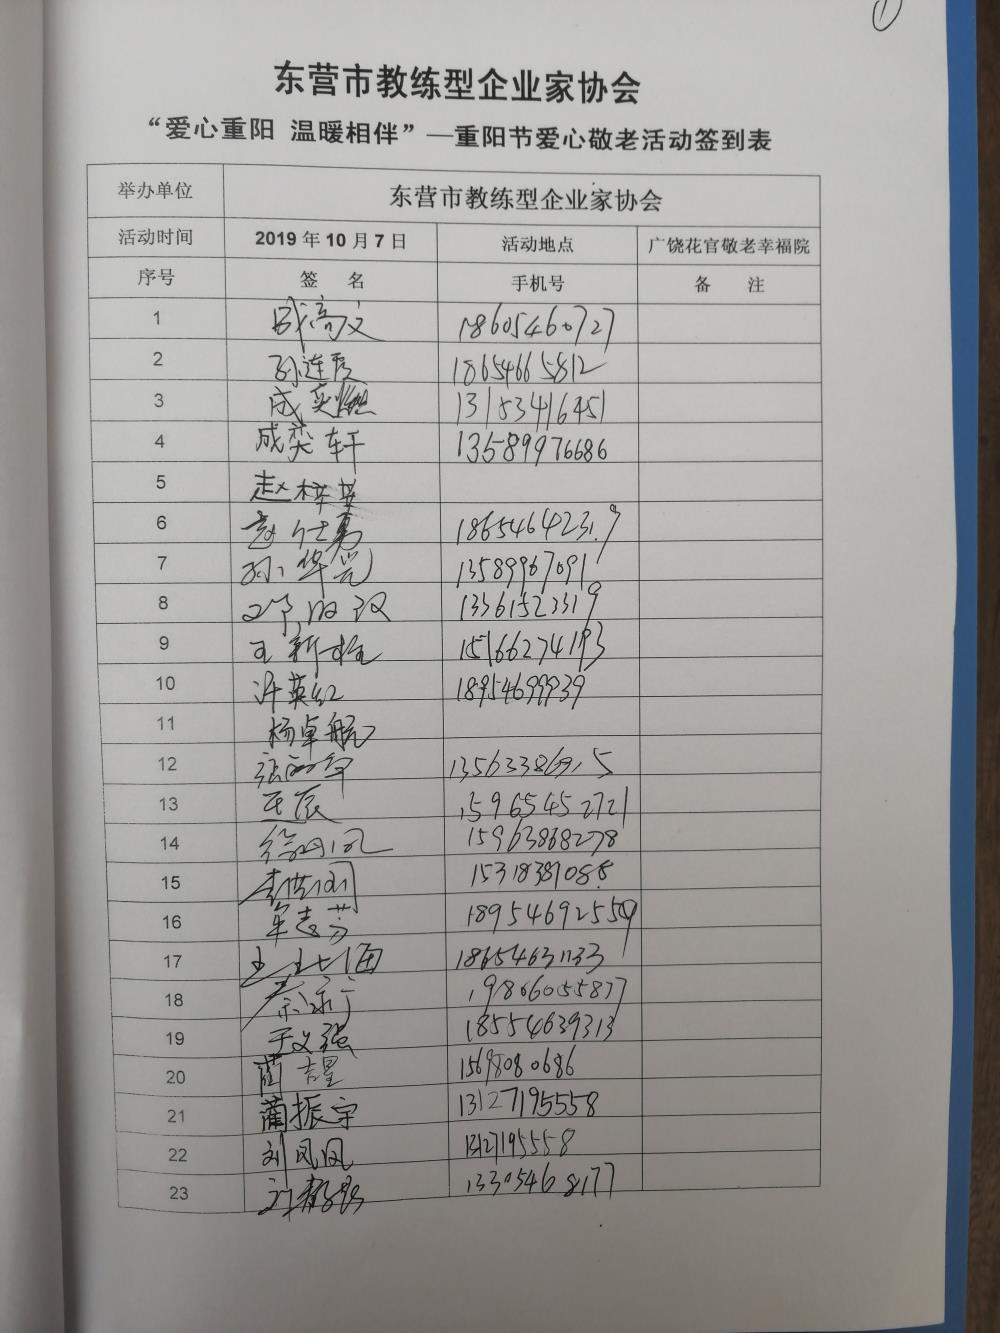 ①
东营市教练型企业家协会
“爱心重阳 温暖相伴”—重阳节爱心敬老活动签到表
举办单位 东营市教练型企业家协会
活动时间 2019年10月7日 活动地点 广饶花官敬老幸福院
序号 签 名 手机号 备 注
1 成高文 18605460727
2 孙连霞 18654665812
3 成奕燃 13153416451
4 成奕轩 13589976686
5 赵梓芏
6 赵仕勇 18654642319
7 孙华光 13589967091
8 13361523319
9 王新柱 15166274193
10 许英红 18954699939
11 杨卓航
12 13563386915
13 王辰 15965452721
14 15963868278
15 15318387088
16 牟志芳 18954692559
17 18654631133
18 秦永广 19806055877
19 于文强 18554639313
20 蔺吉星 15698080686
21 蔺振宇 13127195558
22 刘凤凤 13127195558
23 13305468177